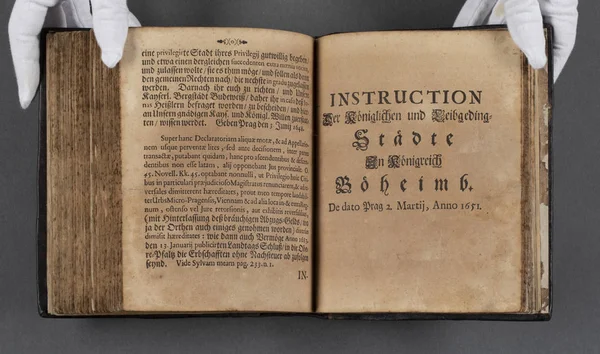 eine privilegirte Stadt ihres Privilegij gutwillig begeben /
und etwa einen dergleichen
und zulassen wolte / sie es thun möge / und sollen alsdann
den gemeinen Rechten nach / die nechste in gradu
werden. Darnach ihr euch zu richten / und
Kayserl. Bergstädt Budweiß / daher ihr in casu
Heißlern befragt worden / zu bescheiden /
an Unsern gnädigen Kays. und Königl. Willen
ten / wissen werdet. Geben Prag den 5. Junij 1642.
Super hanc Declaratoriam aliquæ motæ, & ad Appellatio-
nem usque perventæ lites, sed ante decisionem, inter partes
transactæ, putabant quidam, hanc pro ascendentibus & descen-
dentibus non esse latam, alij opponebant jus provinciale.
45. Novell. Kk. 45. optabant nonnulli, ut Privilegio huic Civi-
bus in particulari præjudicioso Magistratus renunciarent, & ad
versales dimitterent hæreditates, prout meo tempore
ter Urbs Micro-Pragensis, Viennam & ad alia loca in
num, ostenso vel jure retorsionis, aut exhibitis reversalibus,
(mit Hinterlassung deß bräuchigen Abzugs-Gelds,
ja der Orthen auch einiges genohmen worden)
dimissæ hæreditates: wie dann auch Vermöge Anno 1653.
den 13. Januarij publicirten Landtags Schluß / in die Obe-
re-Pfaltz die Erbschafften ohne Nachsteuer ab zufolgen
seynd. Vide Sylvam meam pag. 233. n. 1.
IN-
INSTRUCTION
Der Königlichen und Leibgeding-
Städte
In Königreich
Böheimb.
De dato Prag 2. Martij, Anno 1651.